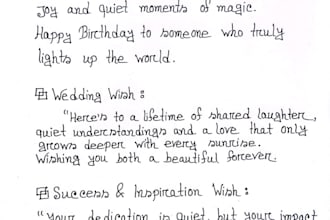 Joy and quiet moments of magic.
Happy Birthday to someone who truly
lights up the world.
Wedding Wish :
"Here's to a lifetime of shared laughter,
quiet understandings and a love that only
grows deeper with every sunrise.
Wishing you both a beautiful forever.
Success & Inspiration Wish :
"Your dedication is quiet, but your impact